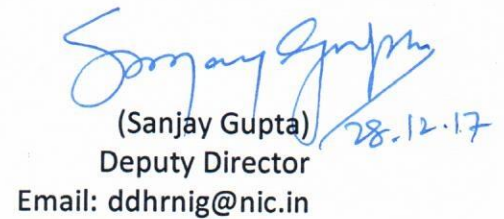 Sanjay Gupta
(Sanjay Gupta) 28.12.17
Deputy Director
Email: ddhrnig@nic.in